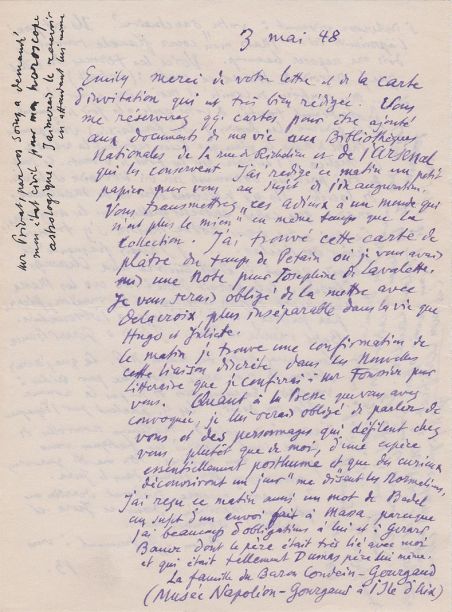 3 mai 48
Emily merci de votre lettre et de la carte
d'invitation qui est très bien rédigée. Vous
me réserverez qq cartes pour être ajouté
aux documents de ma vie aux Bibliothèques
Nationales de la rue de Richelieu et de l'Arsenal
qui les conservent J'ai rédigé ce matin un petit
papier pour vous au sujet de l'inauguration.
Vous transmettrez "ces adieux à un monde qui
n'est plus le mien" en même temps que la
collection. J'ai trouvé cette carte de
plâtre du temps de Petain où je vous avais
mis une note pour Josephine de Lavalette.
Je vous serais obligé de la mettre avec
Delacroix plus inséparable dans la vie que
Hugo et Juliette.
Ce matin je trouve une confirmation de
cette liaison discrète dans les Nouvelles
Litteraire que je confirai à Mr pour
vous. Quant à la Presse que vous avez
convoquée, je lui serais obligé de parler de
vous et des personnages qui défilent chez
vous plutôt que de moi, d'une espèce
essentiellement posthume et que des curieux
découvriront un jour" me disent les
J'ai reçu ce matin aussi un mot de Badel
au sujet d'un envoi fait à Massa, parceque
j'ai beaucoup d'obligations à lui et à Gerard
Bauer dont le père était très lié avec moi
et qui était tellement Dumas père lui même.
La famille du Baron Gourgaud
(Musée Napoléon-Gourgaud à l'Ile d'Aix)
Mr Privat, par vos soins a demandé
mon état civil pour mon horoscope
astrologique, J'aimerais le recevoir
en attendant lui même